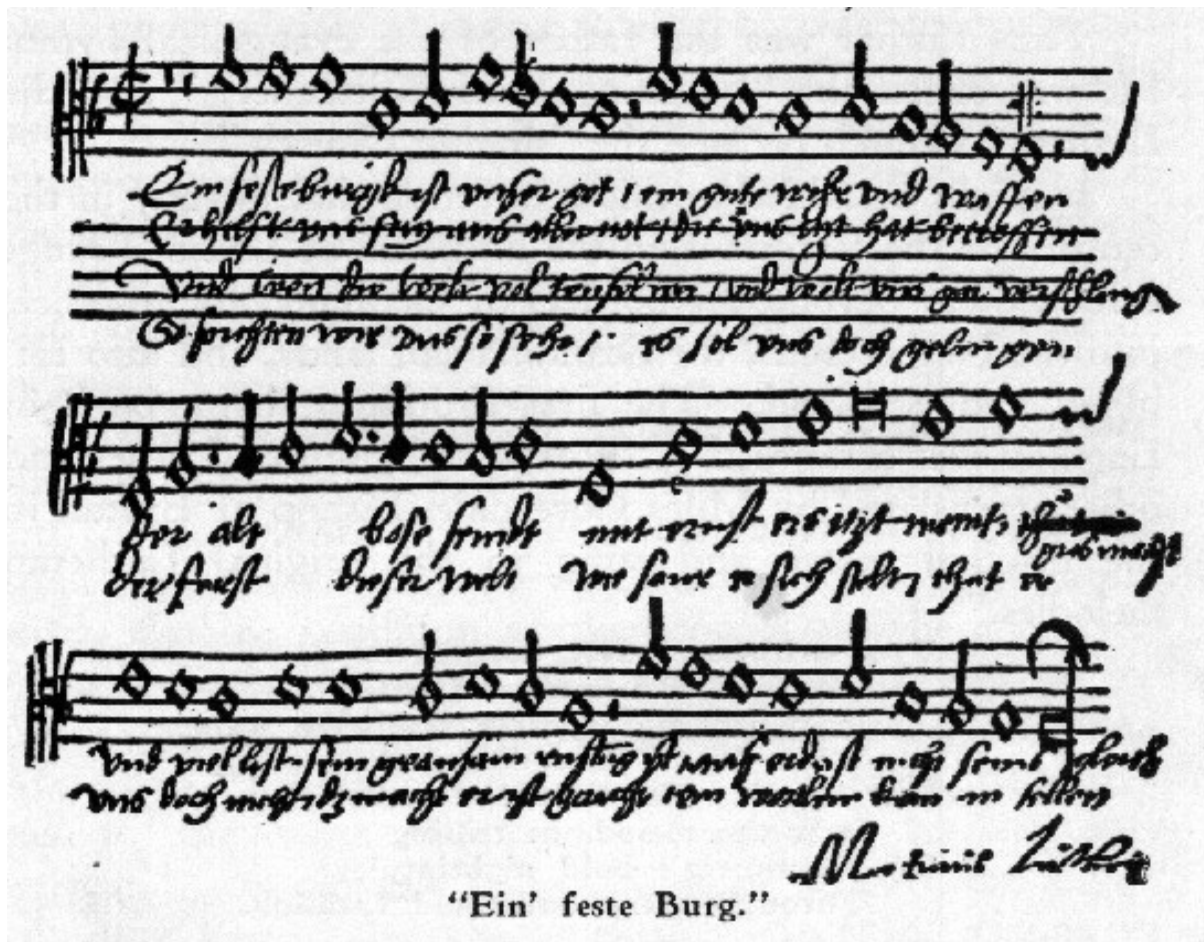 Ein feste burgk ist unser got / ein gute wehr und waffen
Er hilfft uns frey aus aller not / die uns itzt hat betroffen
Und wen die welt vol teufel / und wolt uns gar verschling
So furchten wir uns so sehr / es sol uns doch gelingen
der alt bose feindt mit ernst ers itzt meint / gros macht
der furst dieser welt wie saur er sich stelt / that er
und viel list sein grausam rustung ist auf erd ist nicht seins gleich
uns doch nicht macht er ist gericht ein wortlin kan in fellen
Martinus Luther
“Ein’ feste Burg.”